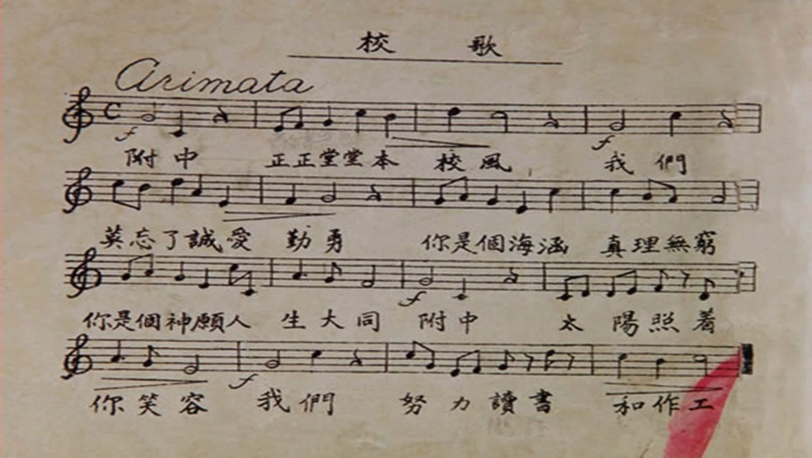 校歌
Arimata
附中 正正堂堂本 校風 我們
莫忘了誠愛 勤勇 你是個海涵 真理無窮
你是個神願人 生大同 附中 太 陽照着
你笑容 我們 努力讀書 和作工